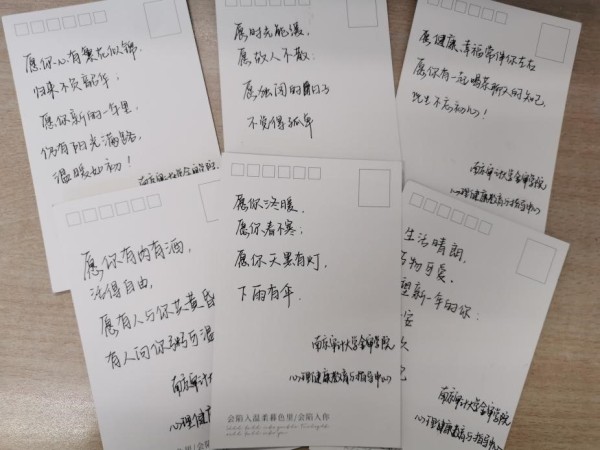 愿你心有繁花似锦.
归来不负韶华;
愿你新的一年里
仍有阳光满路.
温暖如初!
愿时光能缓,
愿故人不散;
愿独闯的日子
不觉得孤单
愿健康、幸福常伴你左右
愿你有一起喝茶聊天的知己,
不忘初心!
南京审计大学金审学院
心理健康教育与指导中心
愿你有肉有酒,
活得自由,
愿有人与你共黄昏
有人问你粥可温
南京审计大
心理健康
愿你冬暖,
愿你春不寒;
愿你天黑有灯,
下雨有伞.
南京审计大学金审学院
心理健康教育与指导中心
会陷入温柔暮色里/会陷入你
生活晴朗,
万物可爱.
望新一年的你:
安
南京审计大学金审学院
心理健康教育与指导中心